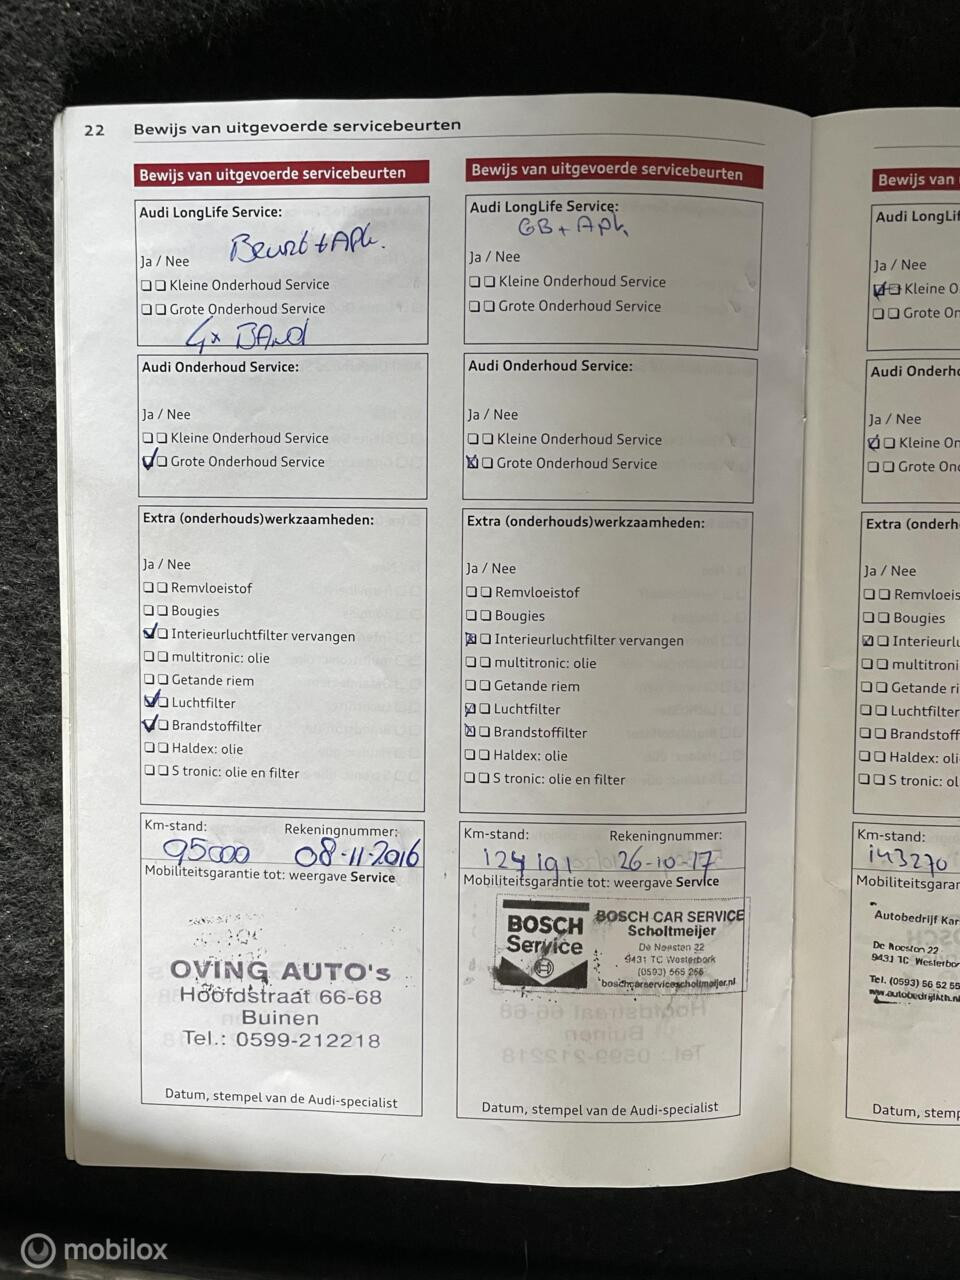 22 Bewijs van uitgevoerde servicebeurten
Bewijs van uitgevoerde servicebeurten
Audi LongLife Service:
Beurt + APk.
Ja / Nee
Kleine Onderhoud Service
Grote Onderhoud Service
4x BANd
Audi Onderhoud Service:
Ja / Nee
Kleine Onderhoud Service
Grote Onderhoud Service
Extra (onderhouds)werkzaamheden:
Ja / Nee
Remvloeistof
Bougies
Interieurluchtfilter vervangen
multitronic: olie
Getande riem
Luchtfilter
Brandstoffilter
Haldex: olie
S tronic: olie en filter
Km-stand: Rekeningnummer:
95000 08-11-2016
Mobiliteitsgarantie tot: weergave Service
OVING AUTO's
Hoofdstraat 66-68
Buinen
Tel.: 0599-212218
Datum, stempel van de Audi-specialist
Bewijs van uitgevoerde servicebeurten
Audi LongLife Service:
GB + APk
Ja / Nee
Kleine Onderhoud Service
Grote Onderhoud Service
Audi Onderhoud Service:
Ja / Nee
Kleine Onderhoud Service
Grote Onderhoud Service
Extra (onderhouds)werkzaamheden:
Ja / Nee
Remvloeistof
Bougies
Interieurluchtfilter vervangen
multitronic: olie
Getande riem
Luchtfilter
Brandstoffilter
Haldex: olie
S tronic: olie en filter
Km-stand: Rekeningnummer:
124191 26-10-17
Mobiliteitsgarantie tot: weergave Service
BOSCH
Service
BOSCH CAR SERVICE
Scholtmeijer
De Noesten 22
9431 TC Westerbork
(0593) 565 256
boschcarservicescholtmeijer.nl
Datum, stempel van de Audi-specialist
Bewijs van
Audi LongLif
Ja / Nee
Kleine O
Grote On
Audi Onderho
Ja / Nee
Kleine On
Grote On
Extra (onderh
Ja / Nee
Remvloeis
Bougies
Interieurlu
multitroni
Getande ri
Luchtfilter
Brandstoff
Haldex: oli
S tronic: ol
Km-stand:
143270
Mobiliteitsgaran
Autobedrijf Kar
De Noesten 22
9431 TC Westerbor
Tel. (0593) 56 52 55
www.autobedrijfkth.nl
Datum, stemp
mobilox